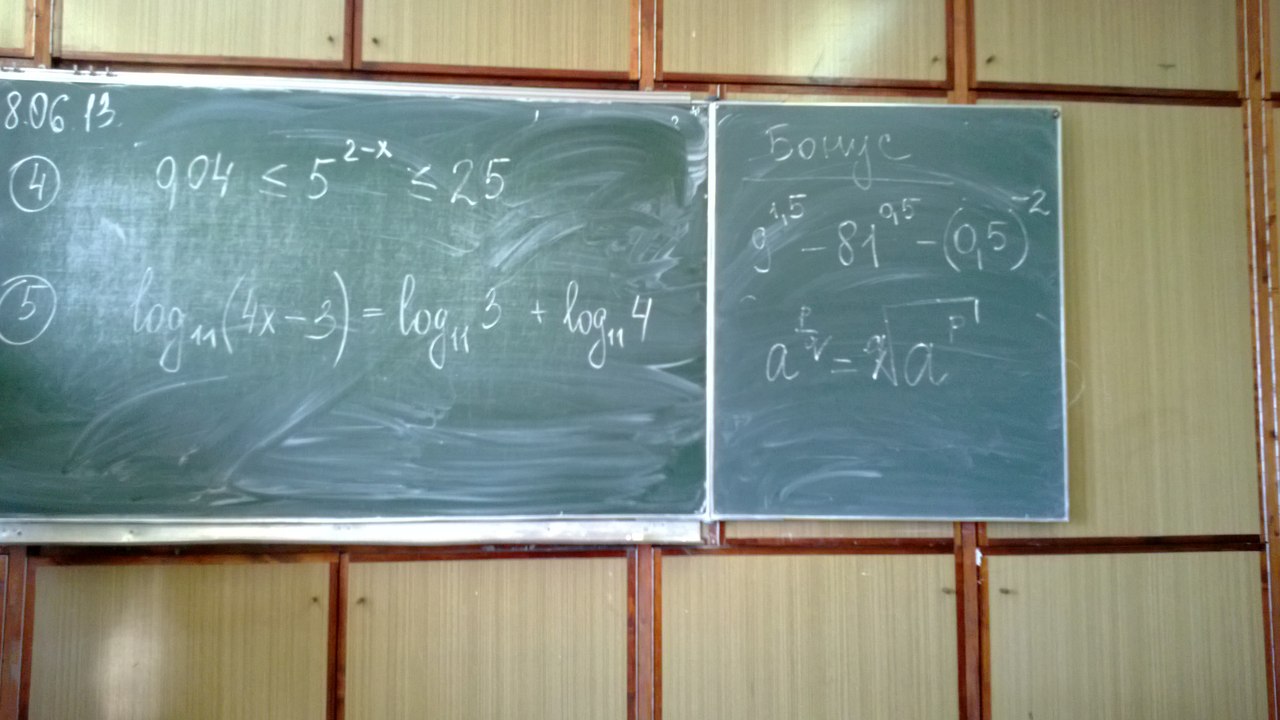 8.06.13.
④ 0,04 ≤ 5^{2-x} ≤ 25
⑤ log₁₁(4x-3) = log₁₁3 + log₁₁4
Бонус
9^{1,5} - 81^{0,5} - (0,5)^{-2}
a^{p/q} = \sqrt[q]{a^p}